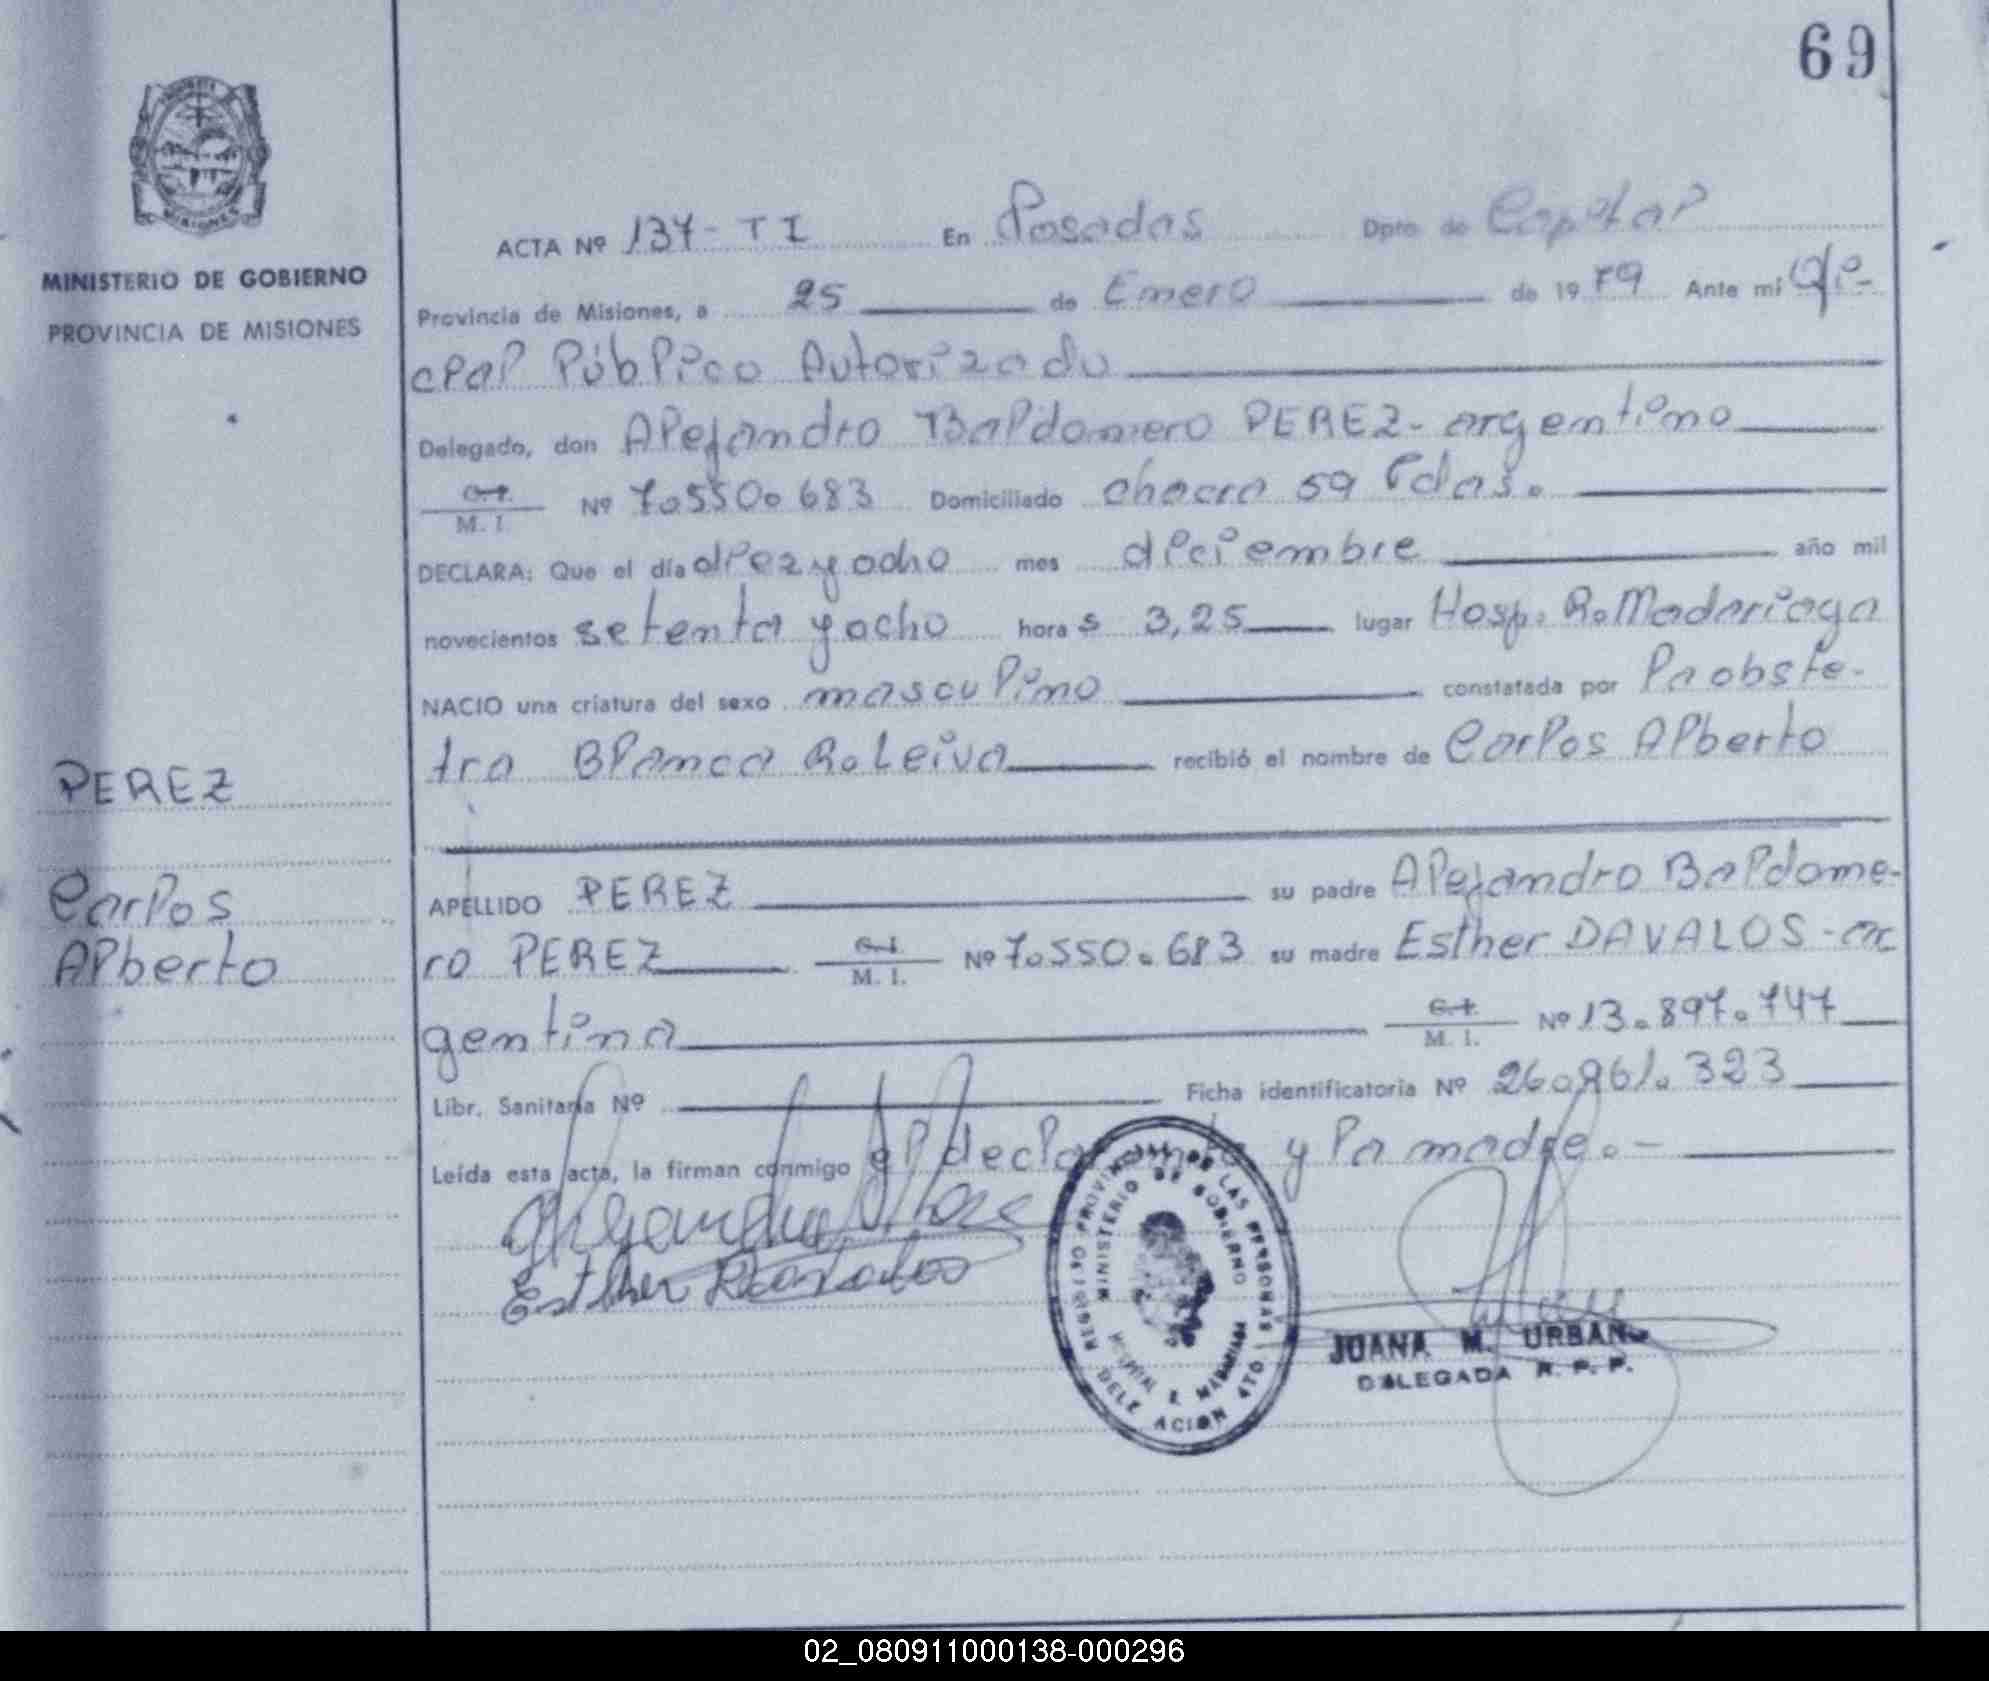 69
MINISTERIO DE GOBIERNO
PROVINCIA DE MISIONES
ACTA Nº 137-TI En Posadas Dpto de Capital
Provincia de Misiones, a 25 de Enero de 1979 Ante mi Ofi-
cial Público Autorizado
Delegado, don Alejandro Baldomero PEREZ - argentino
C.I.
M. I. Nº 7.550.683 Domiciliado chacra 59 Pdas.
DECLARA: Que el día diez y ocho mes diciembre año mil
novecientos setenta y ocho horas 3,25 lugar Hosp. R. Madariaga
NACIO una criatura del sexo masculino constatada por la obste-
tra Blanca R. Leiva recibió el nombre de Carlos Alberto
PEREZ
Carlos
Alberto
APELLIDO PEREZ su padre Alejandro Baldome-
ro PEREZ C.I.
M. I. Nº 7.550.683 su madre Esther DAVALOS - ar
gentina C.I.
M. I. Nº 13.897.747
Libr. Sanitaria Nº Ficha identificatoria Nº 26.961.323
Leída esta acta, la firman conmigo el declarante y la madre. -
Alejandro
Esther Davalos
REGISTRO PROVINCIAL DE LAS PERSONAS
MINISTERIO DE GOBIERNO
HOSPITAL R. MADARIAGA
DELEGACION 4TO
JUANA M. URBAN
DELEGADA R. P. P.
02_080911000138-000296